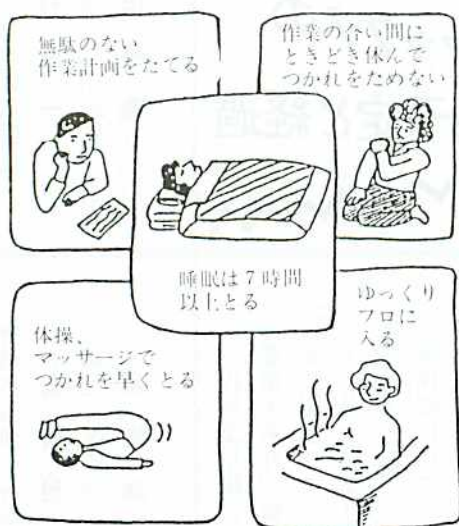 無駄のない
作業計画をたてる
作業の合い間に
ときどき休んで
つかれをためない
睡眠は7時間
以上とる
体操、
マッサージで
つかれを早くとる
ゆっくり
フロに
入る